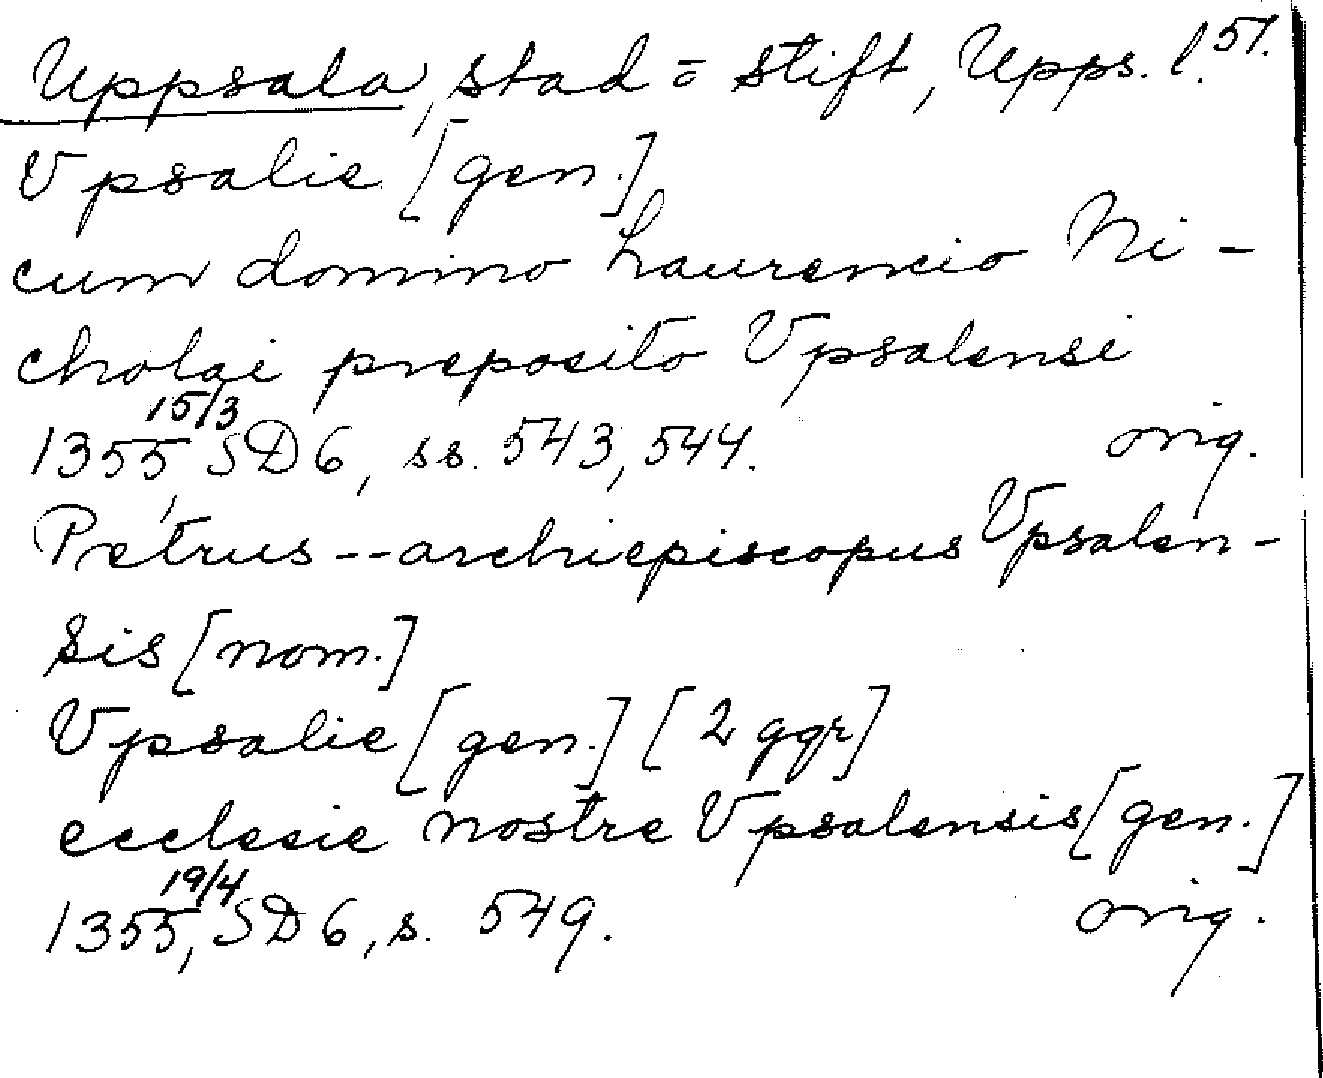 Uppsala, stad = stift, Upps. l. 57.
Vpsalie [gen.]
cum domino Laurencio Ni-
cholai preposito Vpsalensi
15/3
1355, SD 6, ss. 543, 544. orig.
Petrus -- archiepiscopus Vpsalen-
sis [nom.]
Vpsalie [gen.] [2 ggr]
ecclesie nostre Vpsalensis [gen.]
19/4
1355, SD 6, s. 549. orig.